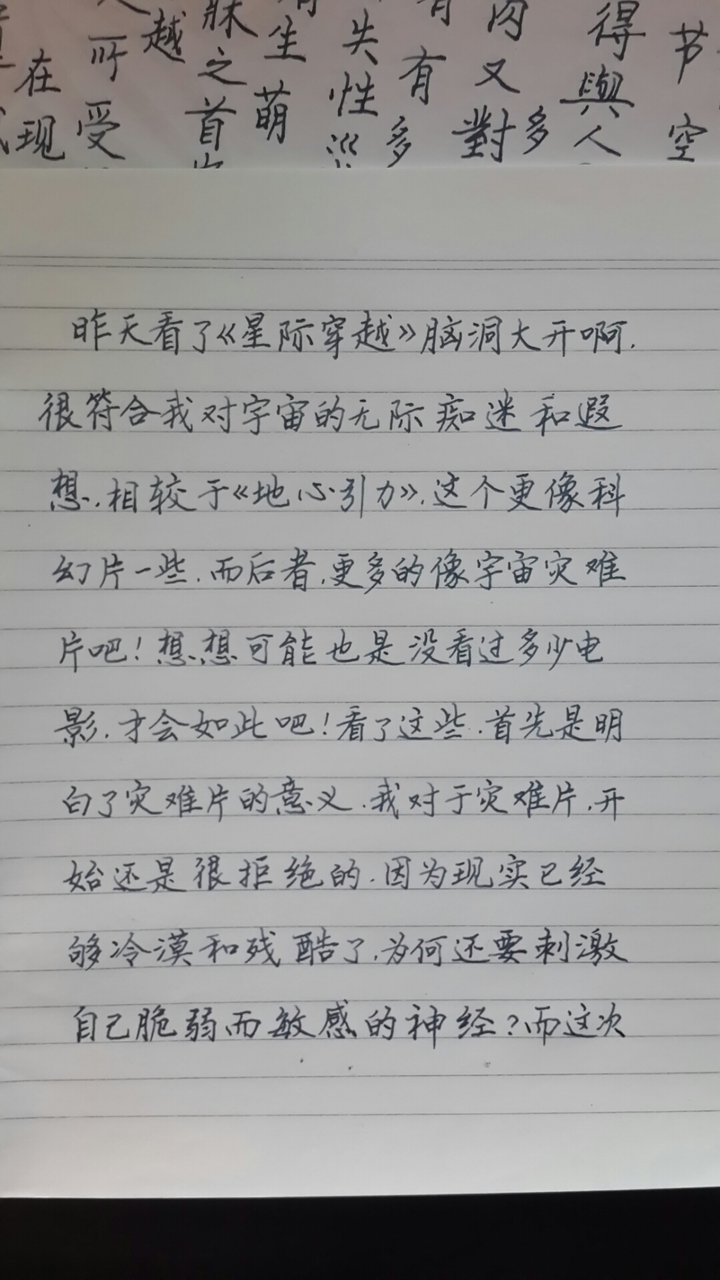 在现
所受
越
之首
生萌
失性巡
有多
又對多
得與人
节空
昨天看了《星际穿越》脑洞大开啊.
很符合我对宇宙的无际痴迷和遐
想.相较于《地心引力》.这个更像科
幻片一些.而后者.更多的像宇宙灾难
片吧!想想可能也是没看过多少电
影.才会如此吧!看了这些.首先是明
白了灾难片的意义.我对于灾难片.开
始还是很拒绝的.因为现实已经
够冷漠和残酷了.为何还要刺激
自己脆弱而敏感的神经?而这次